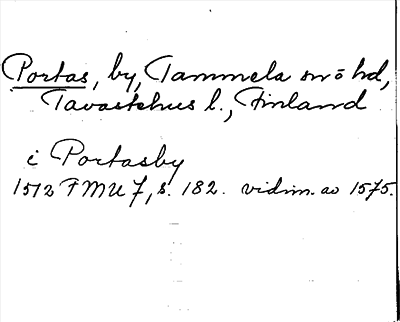 Portas, by, Tammela sn o hd,
Tavastehus l., Finland
i Portasby
1512 FMU 7, s. 182. vidim. av 1575.